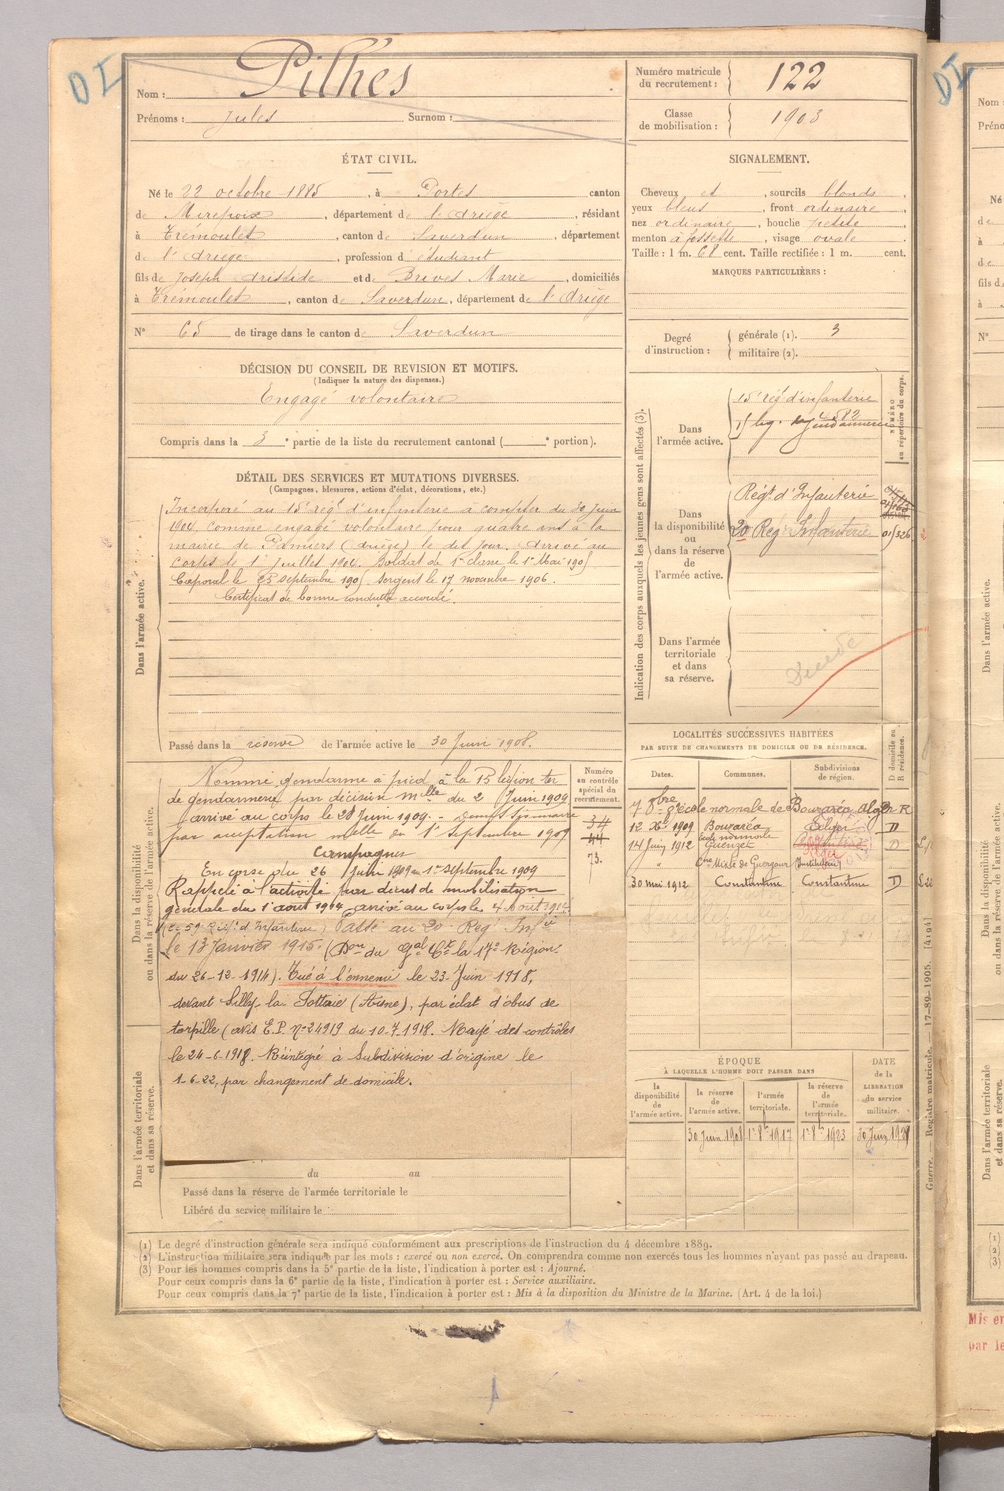 DI
Nom : Pilhes
Prénoms : Jules Surnom :
Numéro matricule du recrutement : 122
Classe de mobilisation : 1903
ÉTAT CIVIL.
Né le 22 octobre 1885, à Portes canton
de Mirepoix, département de l'Ariège, résidant
à Trémoulet, canton de Saverdun, département
de l'Ariège, profession d'étudiant
fils de Joseph Aristide et de Brives Marie, domiciliés
à Trémoulet, canton de Saverdun, département de l'Ariège
N° 65 de tirage dans le canton de Saverdun
SIGNALEMENT.
Cheveux et, sourcils blonds
yeux bleus, front ordinaire
nez ordinaire, bouche petite
menton à fossette, visage ovale
Taille : 1 m. 68 cent. Taille rectifiée : 1 m. cent.
MARQUES PARTICULIÈRES :
Degré d'instruction : générale (1). 3
militaire (2).
DÉCISION DU CONSEIL DE REVISION ET MOTIFS.
(Indiquer la nature des dispenses.)
Engagé volontaire
Compris dans la 3e partie de la liste du recrutement cantonal ( e portion).
DÉTAIL DES SERVICES ET MUTATIONS DIVERSES.
(Campagnes, blessures, actions d'éclat, décorations, etc.)
Dans l'armée active.
Incorporé au 15e régt d'infanterie à compter du 30 juin
1904, comme engagé volontaire pour quatre ans à la
mairie de Pamiers (Ariège) le dit jour. Arrivé au
corps le 1er Juillet 1904. Soldat de 1re classe le 1er Mai 1905
Caporal le 25 septembre 1905. Sergent le 17 novembre 1906.
Certificat de bonne conduite accordé.
Passé dans la réserve de l'armée active le 30 Juin 1908.
Dans la disponibilité ou dans la réserve de l'armée active.
Nommé gendarme à pied à la 15 légion ter
de gendarmerie par décision mlle du 2 Juin 1909
arrivé au corps le 26 Juin 1909.
par acceptation mlle en 1er Septembre 1909
Campagnes
En corse du 26 Juin 1909 au 1er septembre 1909
Rappelé à l'activité par décret de mobilisation
générale du 1er aout 1914 arrivé au corps le 4 Aout 1914
(le 59 Régt d'Infanterie) Passé au 20e Reg Infie
le 13 Janvier 1915. (Don du Gal Ct la 17e Région
du 26-12-1914). Tué à l'ennemi le 23 Juin 1918,
devant Silly la Pottrie (Aisne), par éclat d'obus de
torpille (avis E.P. n° 24919 du 10.7.1918. Rayé des contrôles
le 24-6.1918. Réintégré à Subdivision d'origine le
1-6-22, par changement de domicile.
Numéro au contrôle spécial du recrutement.
34
44
73.
Dans l'armée territoriale et dans sa réserve.
du au
Passé dans la réserve de l'armée territoriale le
Libéré du service militaire le
Indication des corps auxquels les jeunes gens sont affectés (3).
NUMÉRO au répertoire du corps.
Dans l'armée active.
15e rég d'infanterie
4582
15 lég. ter gendarmerie
Dans la disponibilité ou dans la réserve de l'armée active.
Régt d'Infanterie
20 Reg Infanterie
01/326
Dans l'armée territoriale et dans sa réserve.
Décédé
LOCALITÉS SUCCESSIVES HABITÉES
PAR SUITE DE CHANGEMENTS DE DOMICILE OU DE RÉSIDENCE.
Dates. Communes. Subdivisions de région. D domicile ou R résidence.
école normale de Bouzaréa Alger R
12 Xbre 1909 Bouzaréa Alger D
école normale
14 Juin 1912 Guenzet D
Cne Mixte de Guergour (Instituteur)
30 mai 1912 Constantine Constantine D
ÉPOQUE
À LAQUELLE L'HOMME DOIT PASSER DANS
la disponibilité de l'armée active. la réserve de l'armée active. l'armée territoriale. la réserve de l'armée territoriale. DATE de la LIBÉRATION du service militaire.
30 Juin 1908 1er 8bre 1917 1er 8bre 1923 30 Juin 1929
Guerre. — Registre matricule. 17-89-1905. [4194]
(1) Le degré d'instruction générale sera indiqué conformément aux prescriptions de l'instruction du 4 décembre 1889.
(2) L'instruction militaire sera indiquée par les mots : exercé ou non exercé. On comprendra comme non exercés tous les hommes n'ayant pas passé au drapeau.
(3) Pour les hommes compris dans la 5e partie de la liste, l'indication à porter est : Ajourné.
Pour ceux compris dans la 6e partie de la liste, l'indication à porter est : Service auxiliaire.
Pour ceux compris dans la 7e partie de la liste, l'indication à porter est : Mis à la disposition du Ministre de la Marine. (Art. 4 de la loi.)
DI
Nom
Préno
Né
de
à
de
fils d
à
N°
Dans l'armée active.
Dans la disponibilité ou dans la réserve de l'armée active.
Dans l'armée territoriale et dans sa réserve.
(1)
(2)
(3)
Mis en
par le